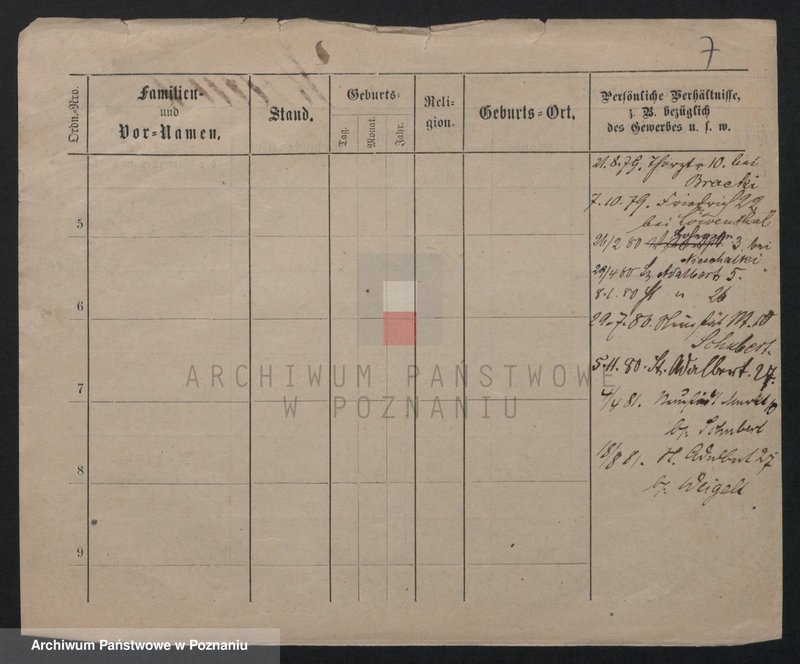 7
Ordn.-Nro.
Familien-
und
Vor-Namen.
Stand.
Geburts-
Tag.
Monat.
Jahr.
Reli-
gion.
Geburts-Ort.
Persönliche Verhältnisse,
z. B. bezüglich
des Gewerbes u. s. w.
21.8.79. Thorstr 10. bei
Bracki
7.10.79. Friedrich 29
bei Löwenthal
26/2 80 3. bei
29/4 80 St Adalbert 5.
8.1.80 St " 26
29.7.80. Neustädt Mt. 10
Schubert.
5.11.80. St. Adalbert. 27.
4/4 81. Markt 10
b/ Schubert
18/8 81. St. Adalbert 27
b/ Weigelt
5
6
7
8
9
ARCHIWUM PAŃSTWOWE
W POZNANIU
Archiwum Państwowe w Poznaniu